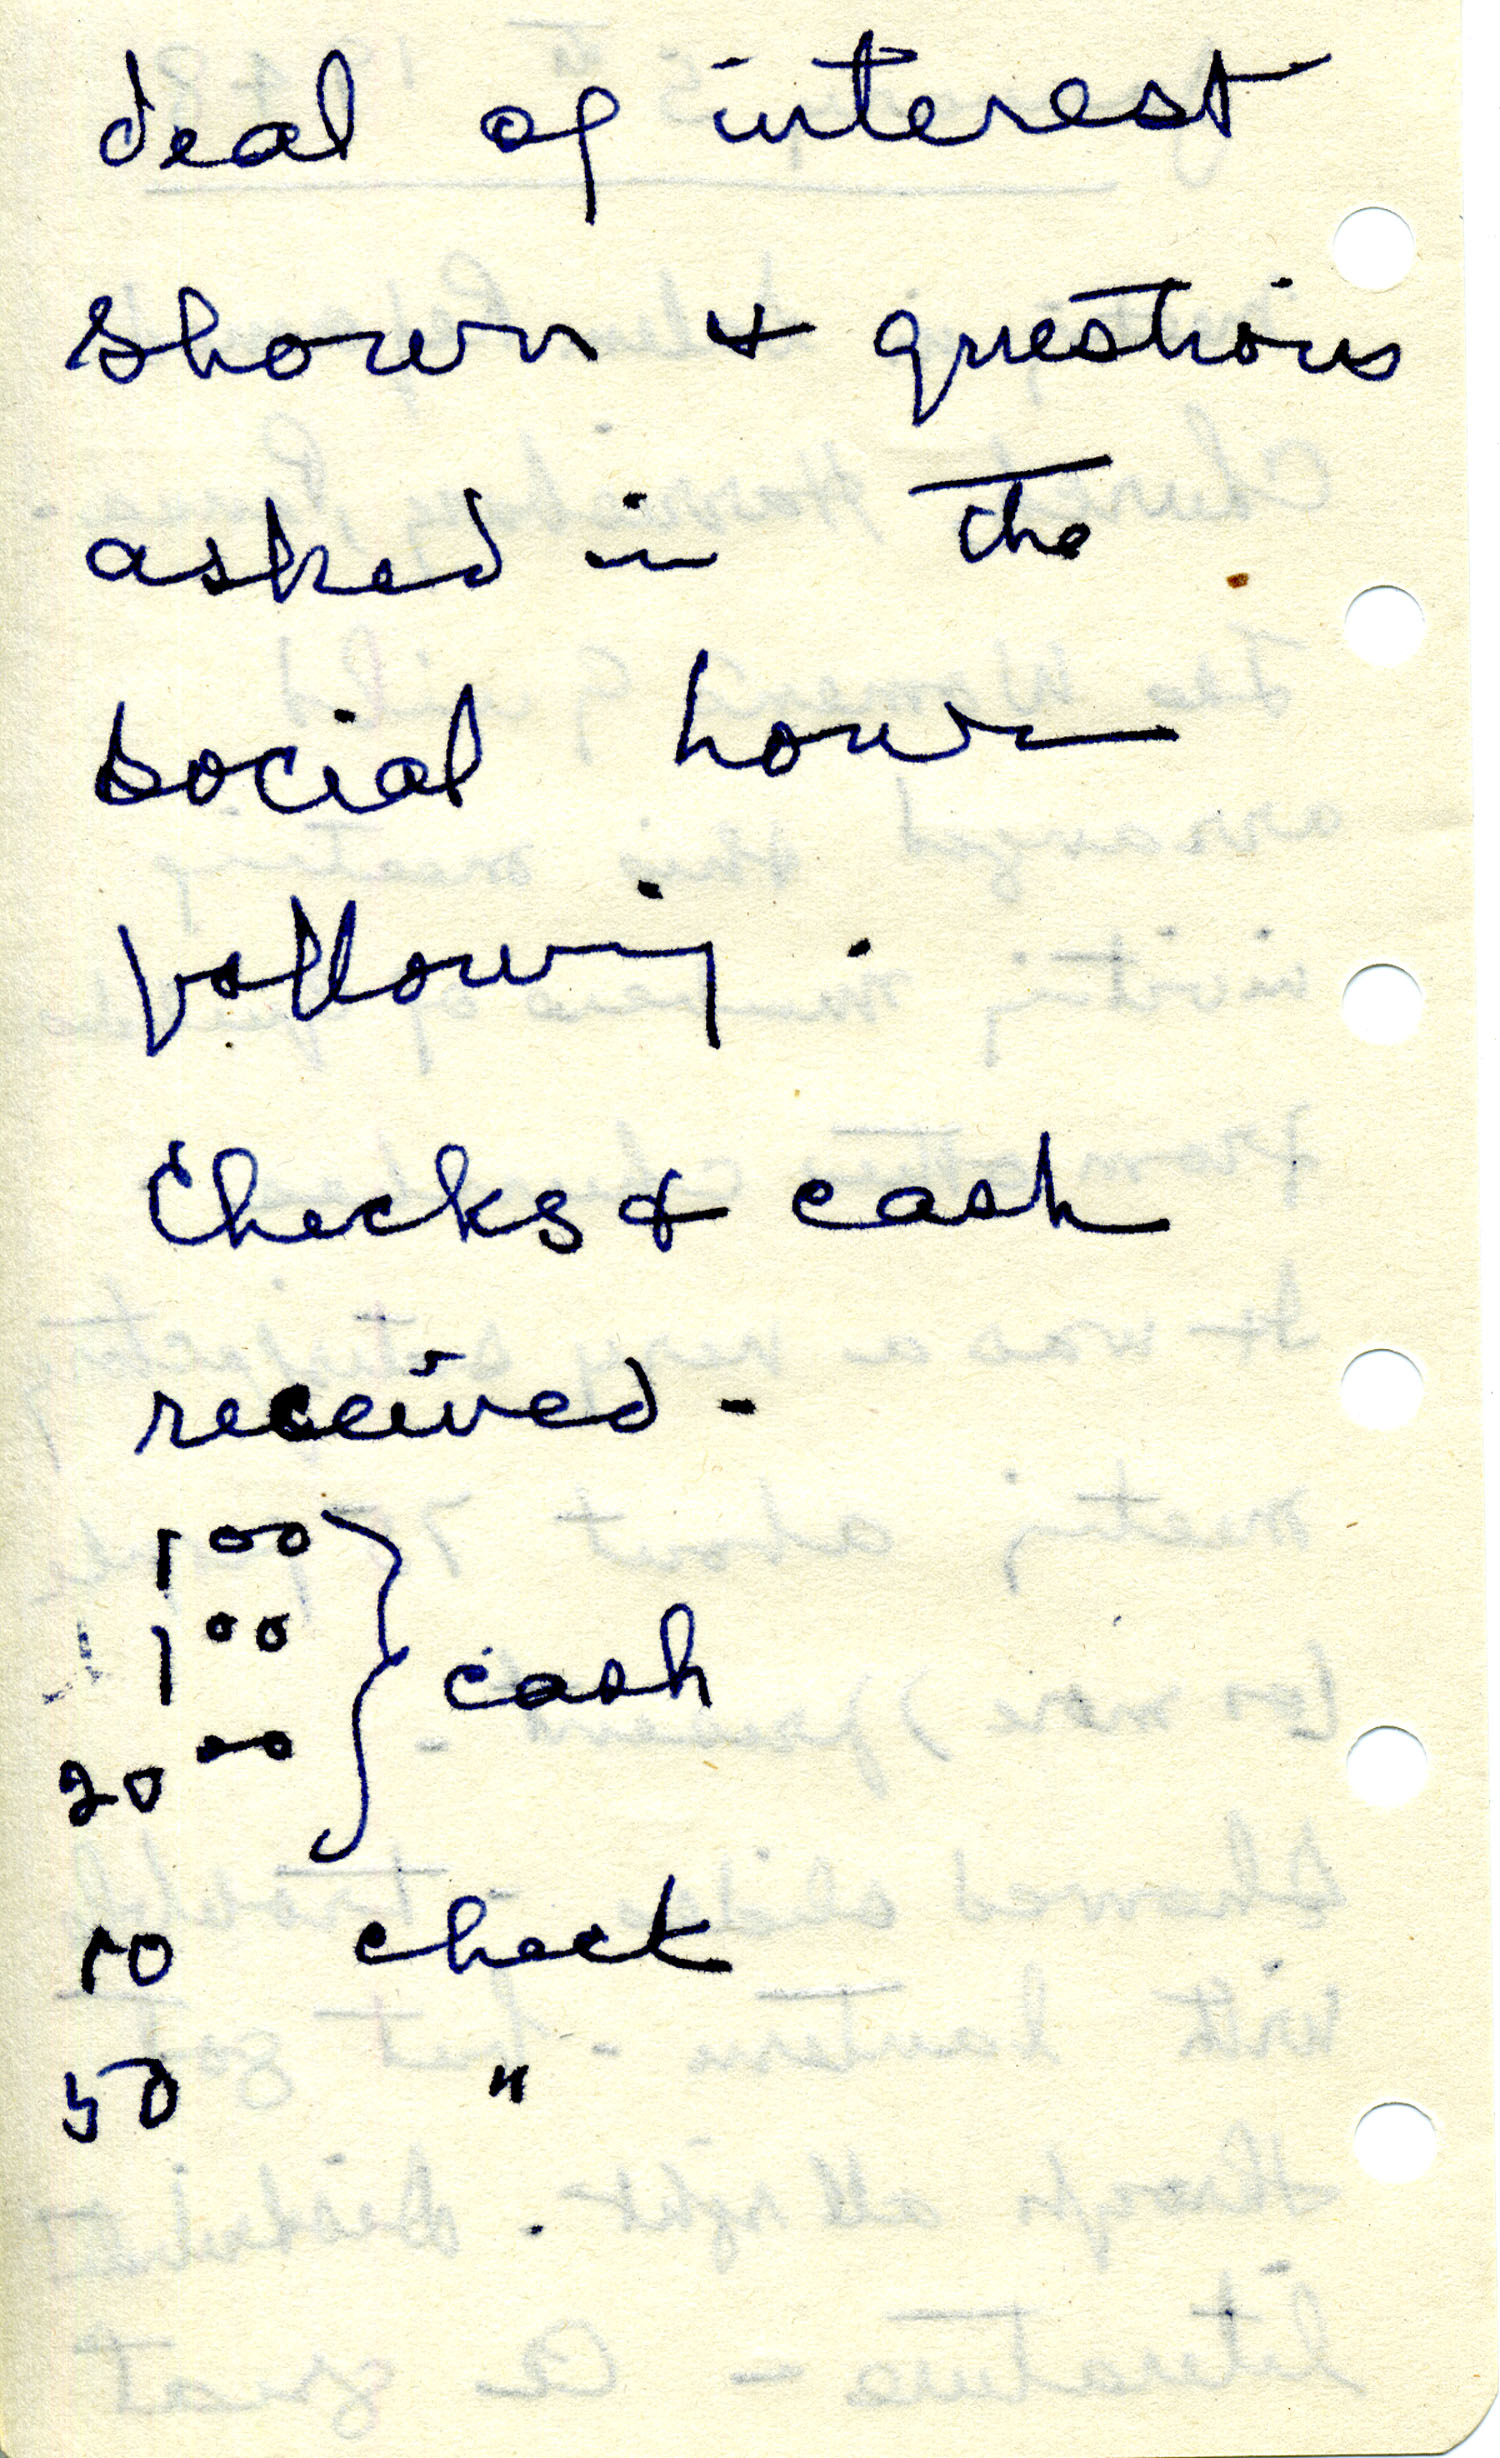 deal of interest
shown & questions
asked in the
social hour
following.
Checks & cash
received -
1 00
1 00 cash
20 00
10 check
50 "